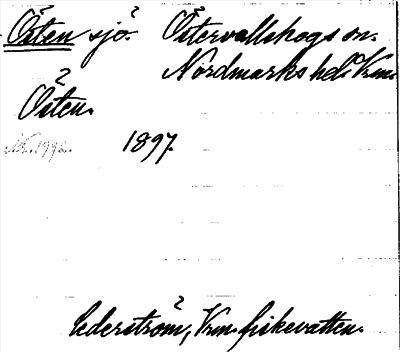 Östen sjö. Östervallskogs sn.
Nordmarks hd. Vrm.
Östen.
1897.
Cederström, Vrm. fiskevatten.